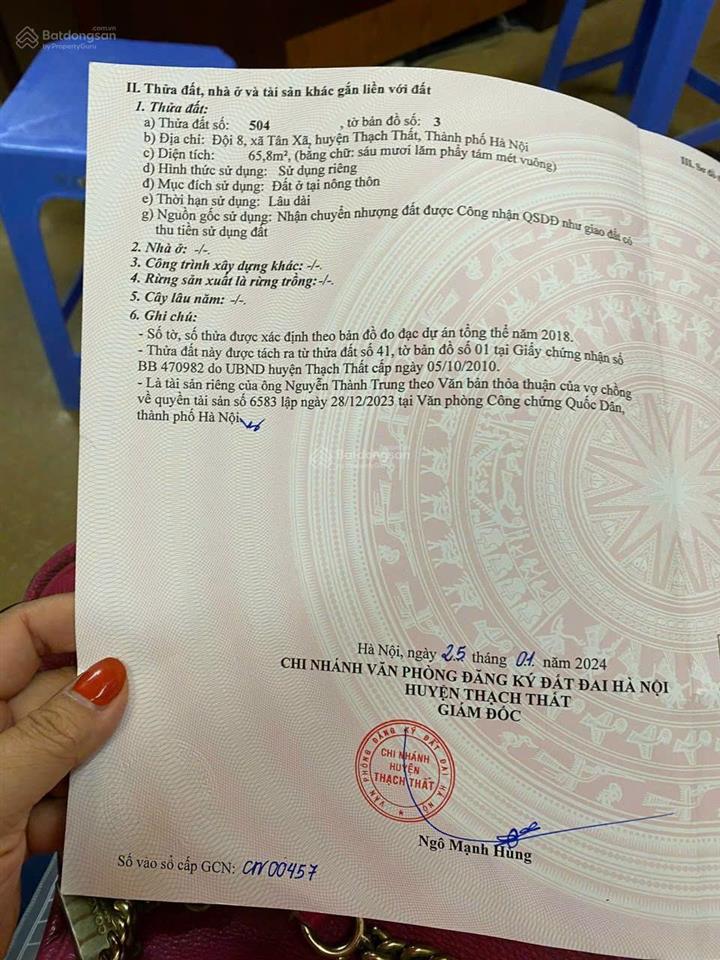 Batdongsan.com.vn
by PropertyGuru
II. Thửa đất, nhà ở và tài sản khác gắn liền với đất
1. Thửa đất:
a) Thửa đất số: 504 , tờ bản đồ số: 3
b) Địa chỉ: Đội 8, xã Tân Xã, huyện Thạch Thất, Thành phố Hà Nội
c) Diện tích: 65,8m², (bằng chữ: sáu mươi lăm phẩy tám mét vuông)
d) Hình thức sử dụng: Sử dụng riêng
đ) Mục đích sử dụng: Đất ở tại nông thôn
e) Thời hạn sử dụng: Lâu dài
g) Nguồn gốc sử dụng: Nhận chuyển nhượng đất được Công nhận QSDĐ như giao đất có
thu tiền sử dụng đất
2. Nhà ở: -/-.
3. Công trình xây dựng khác: -/-.
4. Rừng sản xuất là rừng trồng: -/-.
5. Cây lâu năm: -/-.
6. Ghi chú:
- Số tờ, số thửa được xác định theo bản đồ đo đạc dự án tổng thể năm 2018.
- Thửa đất này được tách ra từ thửa đất số 41, tờ bản đồ số 01 tại Giấy chứng nhận số
BB 470982 do UBND huyện Thạch Thất cấp ngày 05/10/2010.
- Là tài sản riêng của ông Nguyễn Thành Trung theo Văn bản thỏa thuận của vợ chồng
về quyền tài sản số 6583 lập ngày 28/12/2023 tại Văn phòng Công chứng Quốc Dân,
thành phố Hà Nội.
III. Sơ đồ
Batdongsan
by PropertyGuru
Hà Nội, ngày 25 tháng 01 năm 2024
CHI NHÁNH VĂN PHÒNG ĐĂNG KÝ ĐẤT ĐAI HÀ NỘI
HUYỆN THẠCH THẤT
GIÁM ĐỐC
VĂN PHÒNG ĐĂNG KÝ ĐẤT ĐAI HÀ NỘI
CHI NHÁNH
HUYỆN
THẠCH THẤT
Ngô Mạnh Hùng
Số vào sổ cấp GCN: CN 00457